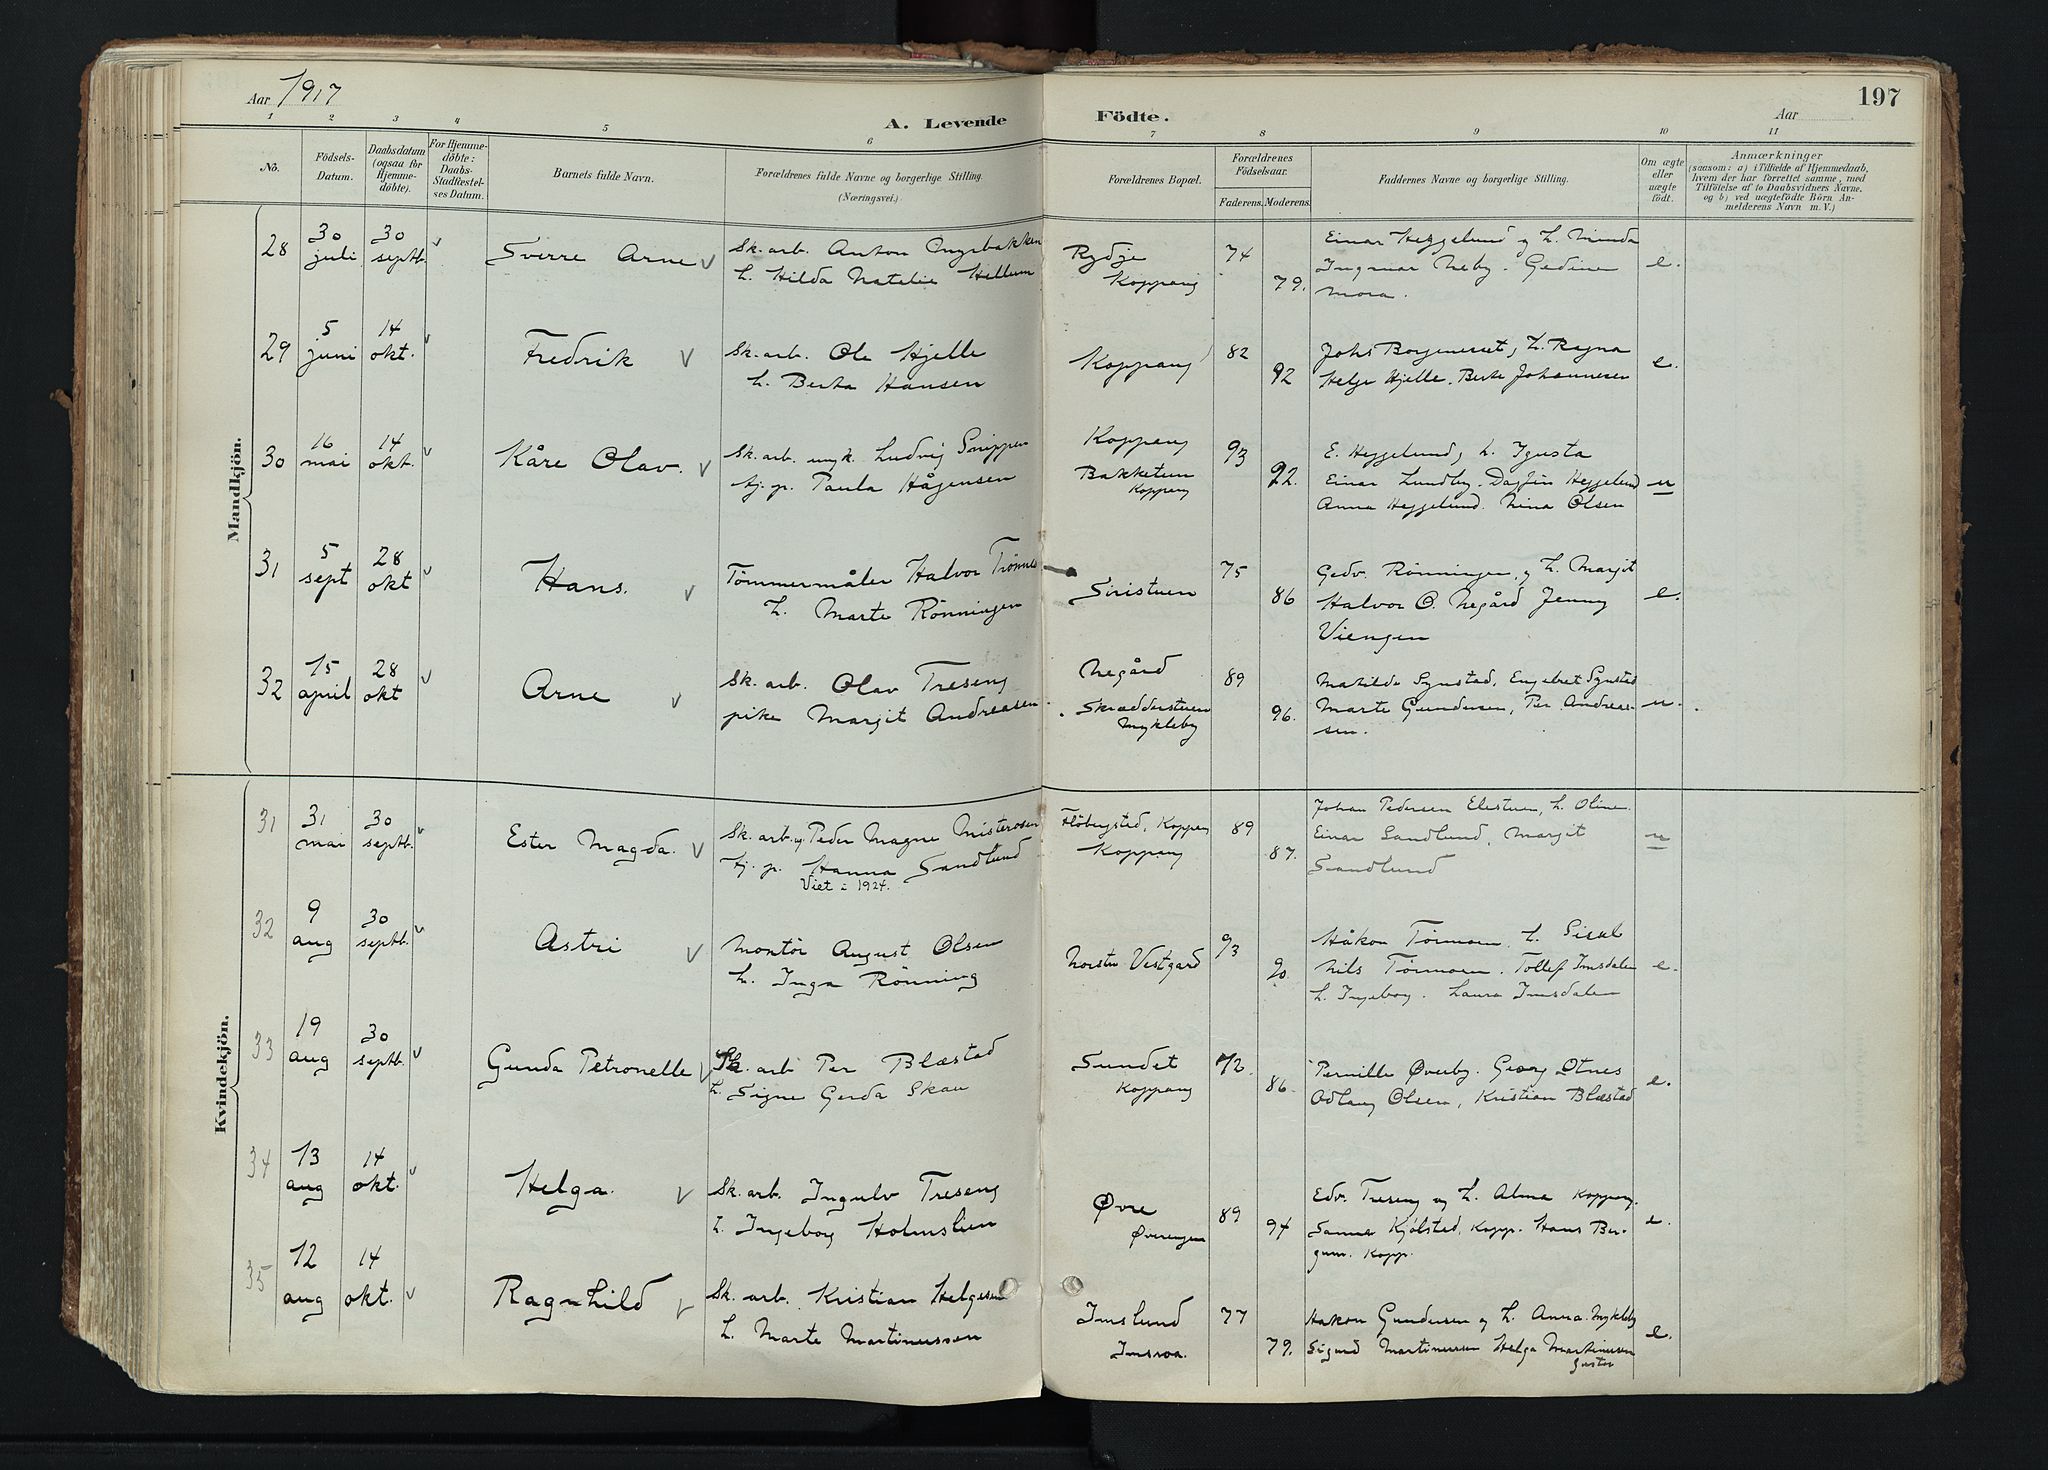 Aar 1917
A. Levende Födte.
Aar
197
1 2 3 4 5 6 7 8 9 10 11
No.
Födsels-
Datum.
Daabsdatum
(ogsaa for
Hjemme-
döbte).
For Hjemme-
döbte:
Daabs-
Stadfæstel-
ses Datum.
Barnets fulde Navn.
Forældrenes fulde Navne og borgerlige Stilling.
(Næringsvei.)
Forældrenes Bopæl.
Forældrenes
Födselsaar.
Faderens. Moderens.
Faddernes Navne og borgerlige Stilling.
Om ægte
eller
uægte
födt.
Anmærkninger
(saasom: a) i Tilfælde af Hjemmedaab,
hvem der har forrettet samme, med
Tilföielse af to Daabsvidners Navne,
og b) ved uægtefödte Börn An-
melderens Navn m. V.)
Mandkjön.
28
30
juli
30
septb.
Sverre Arne
Sk. arb. Anton Engebakken
h. Hilda Natalie Hellum
Koppang
74
79.
Einar Heggelund og h. Minda
Ingmar Neby. Gedine
Mora.
e.
29
5
juni
14
okt.
Fredrik
Sk. arb. Ole Hjelle
h. Berta Hansen
Koppang
82
92
Johs Borgeneset, h. Ragna
Helge Hjelle. Berte Johannesen
e.
30
16
mai
14
okt.
Kåre Olav.
Sk. arb. ungk. Ludvig Snippen
tj. p. Paula Hågensen
Koppang
Bakketun
Koppang
93
92.
E. Heggelund, h. Igusta
Einar Lundby. Dagfin Heggelund
Anna Heggelund. Nina Olsen
u
31
5
sept
28
okt
Hans.
Tömmermåler Halvor Trønnes
h. Marte Rönningen
Siristuen
75
86
Gedv. Rönningen, og h. Margit
Halvor O. Negård Jenny
Viengen
e.
32
15
april
28
okt
Arne
Sk. arb. Olav Treseng
pike Margit Andreasen
Negård
Skrædderstuen
Mykleby
89
96.
Matilde Synstad, Engebret Synstad
Marte Gundersen, Per Andreas-
sen.
u.
Kvindekjön.
31
31
mai
30
septb.
Ester Magda.
Sk. arb. Peder Magne Misterosen
tj. p. Hanna Sandlund
Viet i 1924.
Flöbergsted, Koppang
Koppang
89
87.
Johan Pedersen Elestuen, h. Oline.
Einar Sandlund, Margit
Sandlund
u
32
9
aug
30
septb.
Astri
Montör August Olsen
h. Inga Rönning
Norstu Vestgard
93
90.
Håkon Tørmoen. h. Sisel
Nils Tørmoen. Tollef Imsdalen
h. Ingeborg. Laura Imsdalen
e.
33
19
aug
30
septb.
Gunda Petronelle
Sk. arb Per Blæstad
h. Signe Gerda Skau
Sundet
Koppang
72.
86.
Pernille Øverby. Georg Otnes
Odlaug Olsen, Kristian Blæstad
e.
34
13
aug
14
okt.
Helga.
Sk. arb. Ingulv Treseng
h. Ingeborg Holmslien
Øvre
Øverengen
89
94
Edv. Treseng og h. Alma Koppang.
Sanna Kjölstad, Kopp. Hans Ber-
gum. Kopp.
e.
35
12
aug
14
okt.
Ragnhild
Sk. arb. Kristian Helgesen
h. Marte Martinussen
Imslund
Imsroa.
77
79.
Hakon Gundersen og h. Anna. Mykleby
Sigurd Martinussen Helga Martinussen
e.